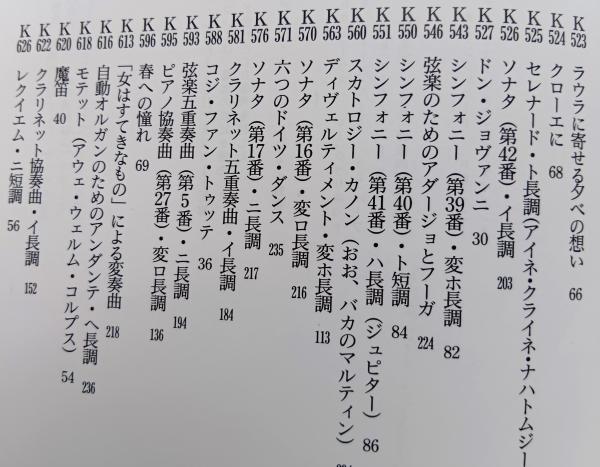 K523 ラウラに寄せる夕べの想い 66
K524 クローエに 68
K525 セレナード・ト長調（アイネ・クライネ・ナハトムジー
K526 ソナタ（第42番）・イ長調 203
K527 ドン・ジョヴァンニ 30
K543 シンフォニー（第39番）・変ホ長調 82
K546 弦楽のためのアダージョとフーガ 224
K550 シンフォニー（第40番）・ト短調 84
K551 シンフォニー（第41番）・ハ長調（ジュピター） 86
K560 スカトロジー・カノン（おお、バカのマルティン）
K563 ディヴェルティメント・変ホ長調 113
K570 ソナタ（第16番）・変ロ長調 216
K571 六つのドイツ・ダンス 235
K576 ソナタ（第17番）・ニ長調 217
K581 クラリネット五重奏曲・イ長調 184
K588 コジ・ファン・トゥッテ 36
K593 弦楽五重奏曲（第5番）・ニ長調 194
K595 ピアノ協奏曲（第27番）・変ロ長調 136
K596 春への憧れ 69
K613 「女はすてきなもの」による変奏曲 218
K616 自動オルガンのためのアンダンテ・ヘ長調 236
K618 モテット（アウェ・ウェルム・コルプス） 54
K620 魔笛 40
K622 クラリネット協奏曲・イ長調 152
K626 レクイエム・ニ短調 56